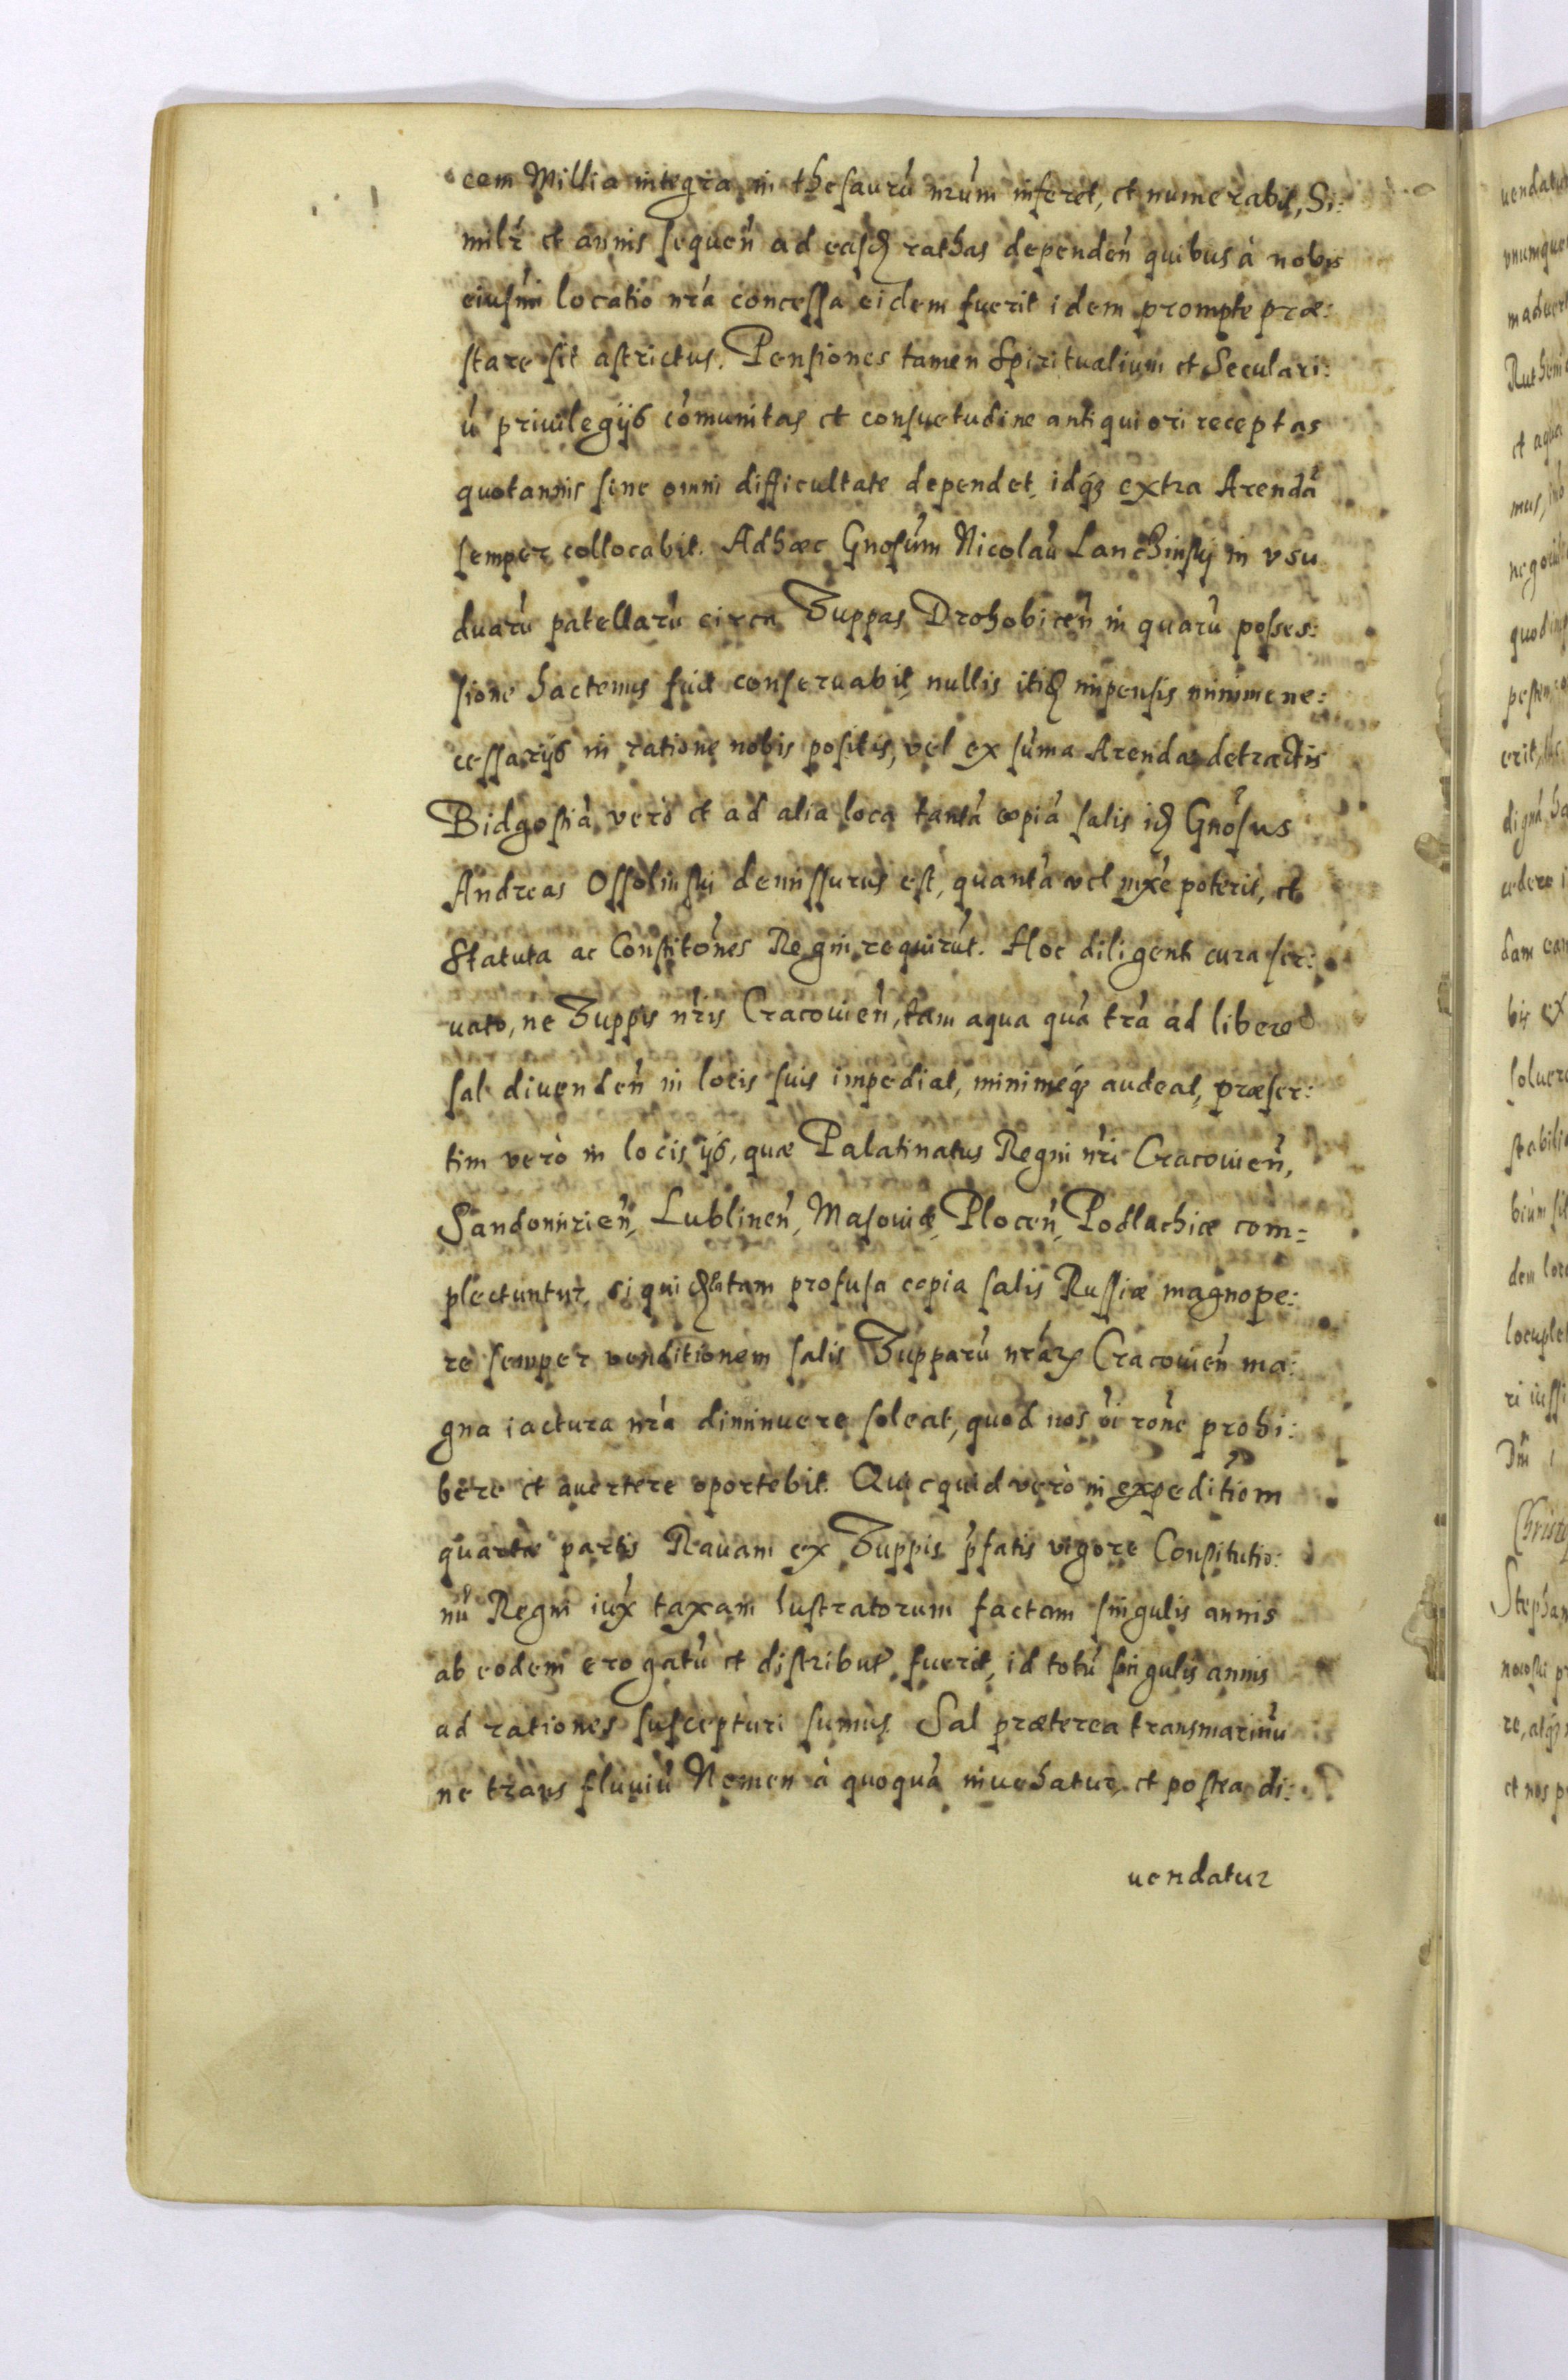 cem Millia integra in thesaurũ nrũm inferet, et numerabit, Si:
milr̃ et annis sequeñ ad easḑ rathas dependeñ quibus à nobis
eiusm̃i locatio nrã concessa eidem fuerit idem prompte præ:
stare sit astrictus. Pensiones tamen Spiritualium et Seculari:
ũ priuilegijs cõmunitas et consuetudine antiquiori receptas
quotannis sine omni difficultate dependet, idq₃ extra Arendã
semper collocabit. Adhæc Gnosũm Nicolaũ Lanchinskj in vsu
duarũ patellarũ circa Zuppas Drohobiceñ in quarũ posses:
sione hactenus fuit conseruabit, nullis itiḑ impensis minime ne:
cessarijs in ratione nobis positis, vel ex sũma Arendæ detractis
Bidgostiã verò et ad alia loca tantã copiã salis iḑ Gnõsus
Andreas Ossolinski demissurus est, quantã vel mx̃e poterit, et
Statuta ac Constitõnes Regni requirũt. Hoc diligenti cura ser:
uato, ne Zuppis nr̃is Cracouieñ, tam aqua quã trã ad libere
sal diuendeñ in locis suis impediat, minimeq₃ audeat, præser:
tim verò in locis ijs, quæ Palatinatus Regni nr̃i Cracouieñ,
Sandomirieñ, Lublineñ, Masouiæ, Ploceñ, Podlachiæ com=
plectuntur, siquiḑ tam profusa copia salis Russiæ magnope:
re semper venditionem salis Zupparũ nrãꝝ Cracouieñ ma:
gna iactura nrã diminuere soleat, quod nos õi rõne prohi:
bere et auertere oportebit. Quicquid verò in expeditiõm
quartæ partis Rauam ex Zuppis p̃fatis vigore Constitutio:
nũ Regni iux̃ taxam lustratorum factam singulis annis
ab eodem erogatũ et distribut̃ fuerit, id totũ singulis annis
ad rationes suscepturi sumus. Sal præterea transmarinũ
ne trans fluuiũ Nemen à quoquã inuehatur, et postea di:
uendatur